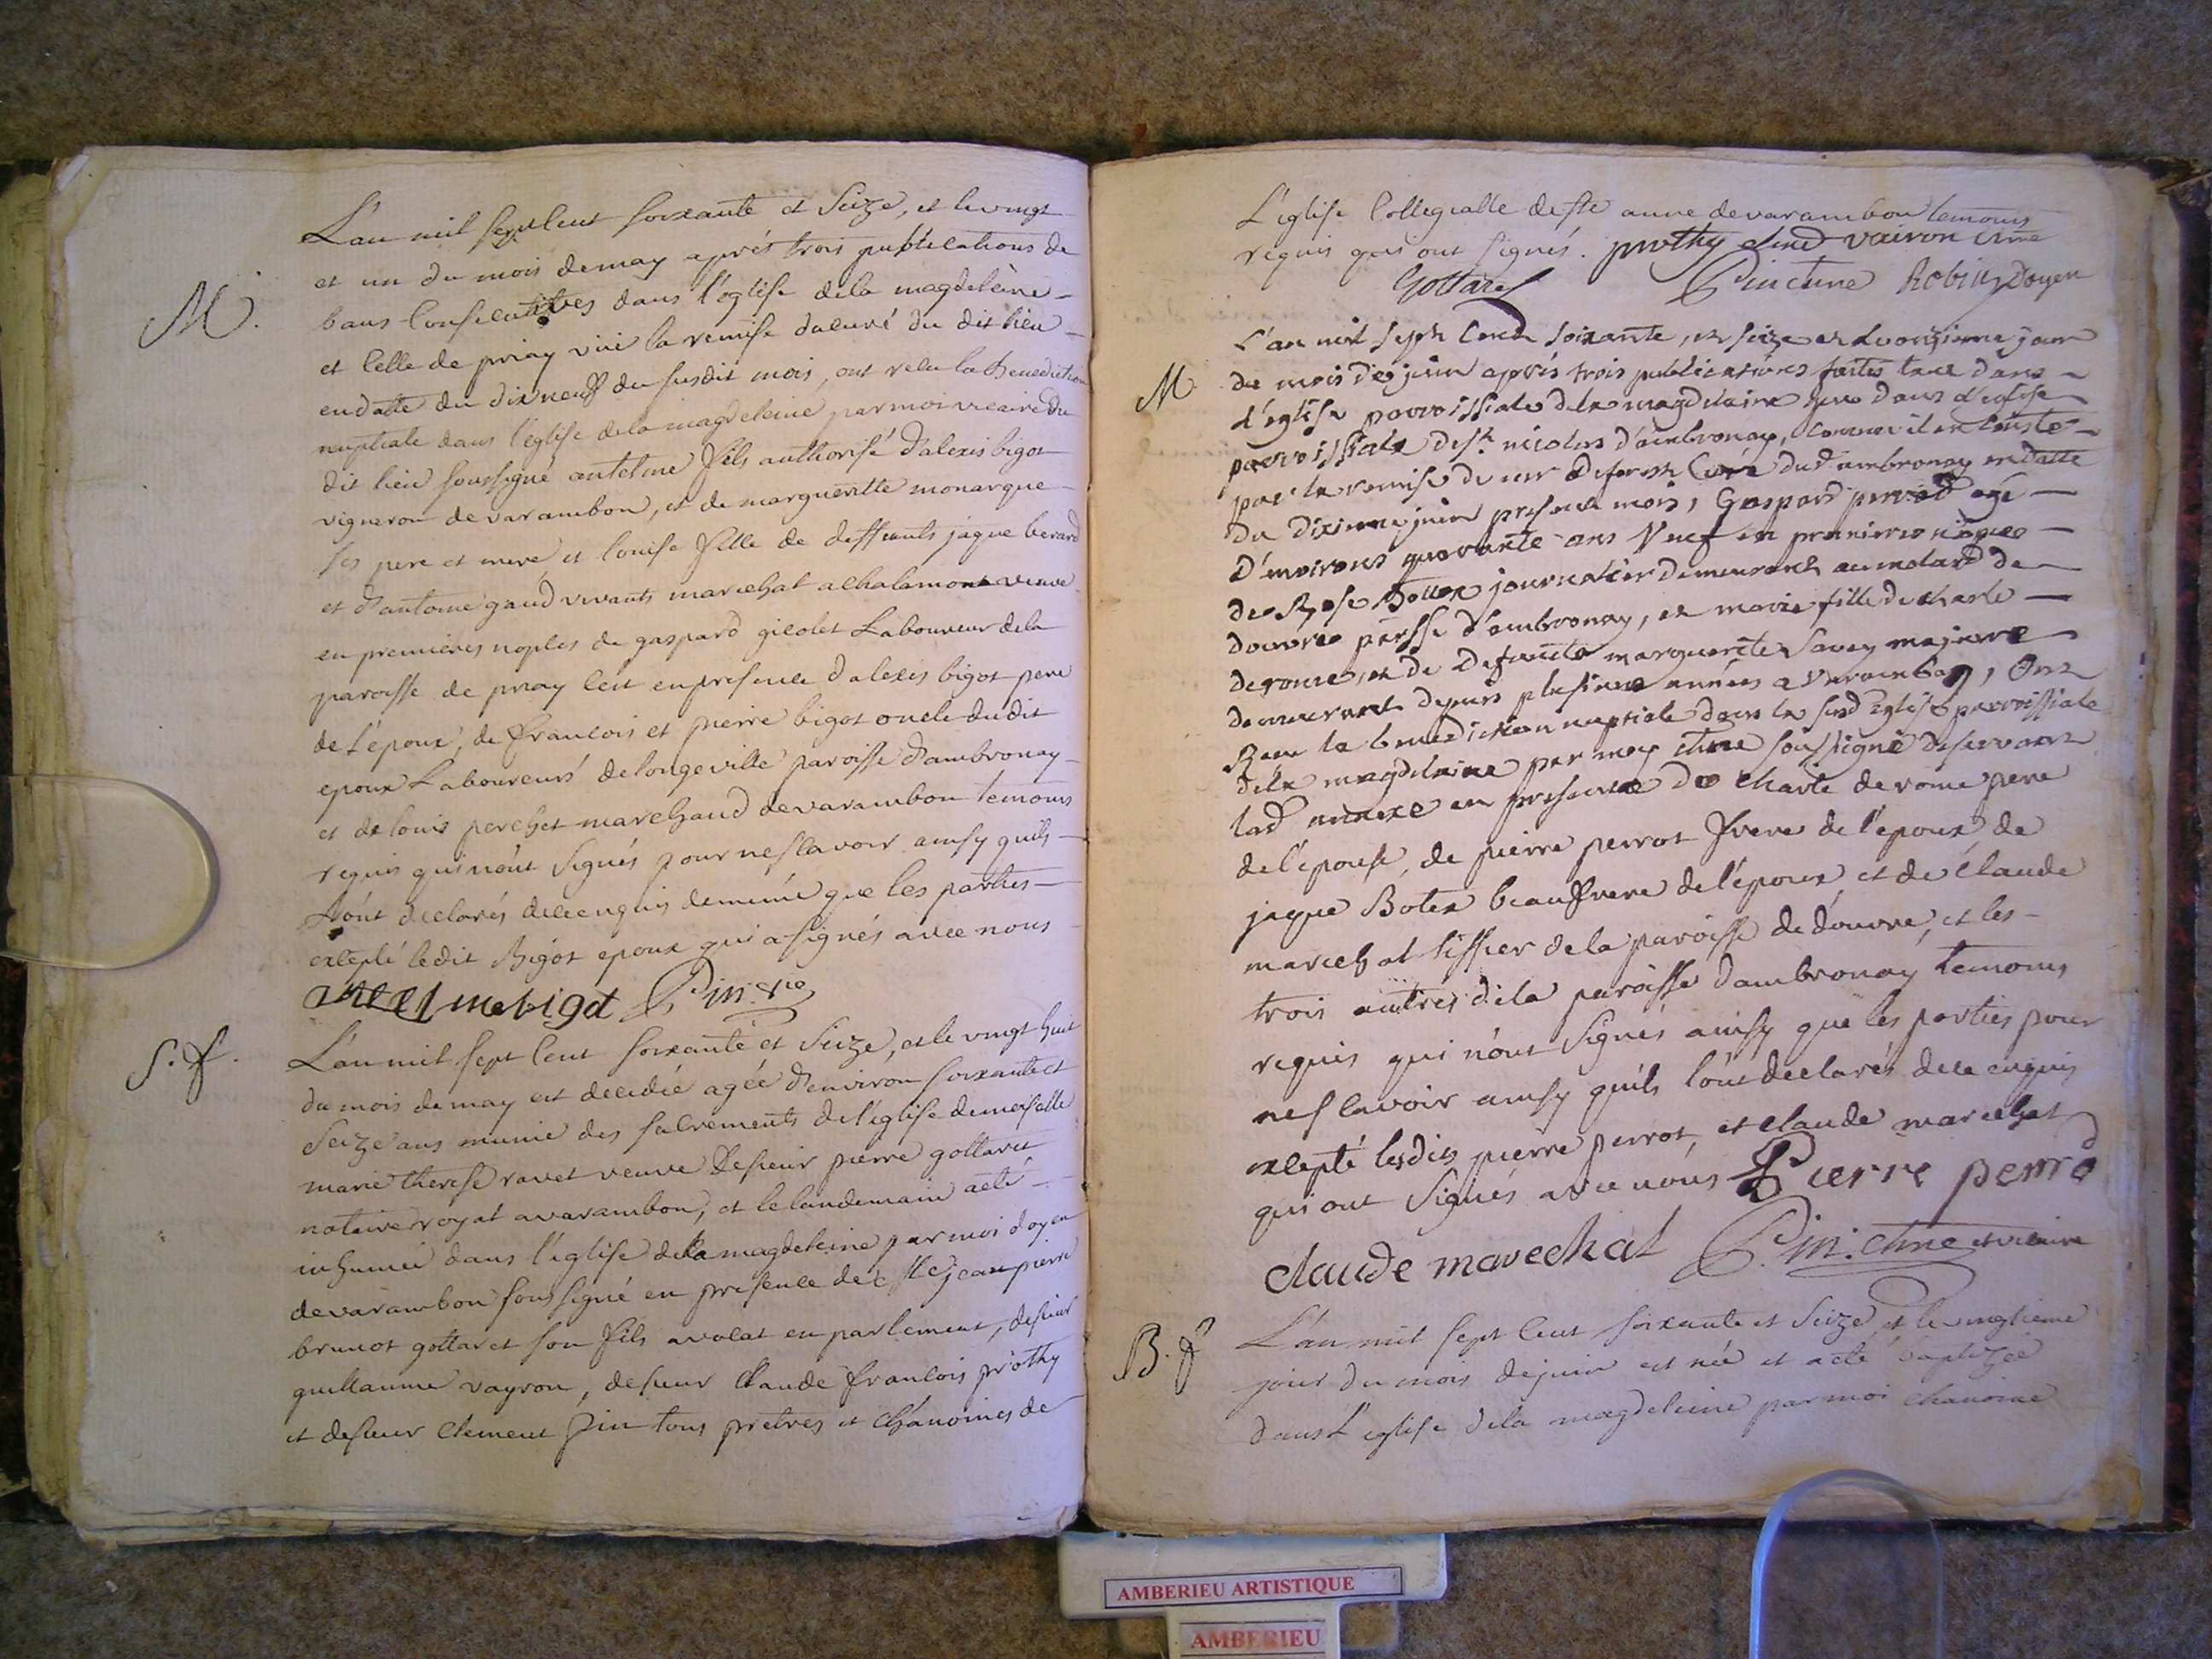 L'an mil sept cent soixante et seize, et le vingt
et un du mois de may aprés trois publications de
M.
bans consecutives dans l'eglise dela magdeleine
et celle de priay vüe la remise du curé du dit lieu
en datte du dix neuf du susdit mois, ont reçu la Benediction
nuptiale dans l'eglise dela magdeleine par moi vicaire du
dit lieu soussigné antelme fils authorisé d'alexis bigot
vigneron de varambon, et de margueritte monarque
ses pere et mere et louise fille de deffunts jaque berard
et d'antoine gaud vivants marechal a chalamont veuve
en premieres noples de gaspard gicolet Laboureur dela
paroisse de priay c'est en presence d'alexis bigot pere
de l'epoux, de francois et pierre bigot oncle dudit
epoux Laboureurs de longeville paroisse d'ambronay
et de louis perchet marchand de varambon temoins
requis qui n'ont signés pour ne sçavoir ainsy quils
l'ont declarés de ce enquis de meme que les parties
excepté ledit Bigot epoux qui a signés avec nous
antelme bigot Pin. vic
S. f.
L'an mil sept cent soixante et seize, et le vingt huit
du mois de may est decedée agée d'environ soixante et
seize ans munie des sacrements de l'eglise demoiselle
marie therese ravet veuve de sieur pierre gottaret
notaire royal a varambon, et le landemain a eté
inhumée dans l'eglise dela magdeleine par moi doyen
de varambon soussigné en presence de jean pierre
brunot gottaret son fils avocat en parlement, de sieur
guillaume vayron, de sieur Claude francois prothy
et de sieur clement Pin tous prètres et chanoines de
L'eglise Collegialle de ste anne de varambon temoins
requis qui ont signés. prothy chne vairon chne
Gottaret Pin chne Robin Doyen
M
L'an mil sept cent soixante, et seize et le onzieme jour
du mois de juin aprés trois publications faites tant dans
l'eglise parroissiale dela magdelaine que dans l'eglise
parroissiale de st. nicolas d'ambronay, comme il en conste
par la remise de mr Curé dud ambronay en datte
du dixieme juin present mois, Gaspard perrod agé
d'environs quarante ans Veuf en premieres nopces
de Rose Bottex journalier demeurant au molard de
douvres parsse d'ambronay, et marie fille de charle
derome, et de defuncte marguerite Savey majeure
demeurant depuis plusieurs années a Varambon, Ont
Recu la benediction nuptiale dans la susd Eglise parroissiale
dela magdelaine par moy chne soussigné desservant
lad annexe en presence de charle de rome pere
de l'épouse, de pierre perrot frere de l'epoux, de
jaque Botex beaufrere de l'époux et de claude
marechal tissier de la paroisse de douvre, et les
trois autres dela paroisse d'ambronay temoins
requis qui n'ont signés ainsy que les parties pour
ne sçavoir ainsy quils l'ont declarés de ce enquis
excepté lesdits pierre perrot, et claude marechal
qui ont signés avec nous Pierre perrod
claude marechal Pin. chne et vicaire
B. f
L'an mil sept cent soixante et seize et le vingtieme
jour du mois de juin est née et a eté baptizée
dans L'eglise dela magdeleine par moi chanoine
AMBERIEU ARTISTIQUE
AMBERIEU